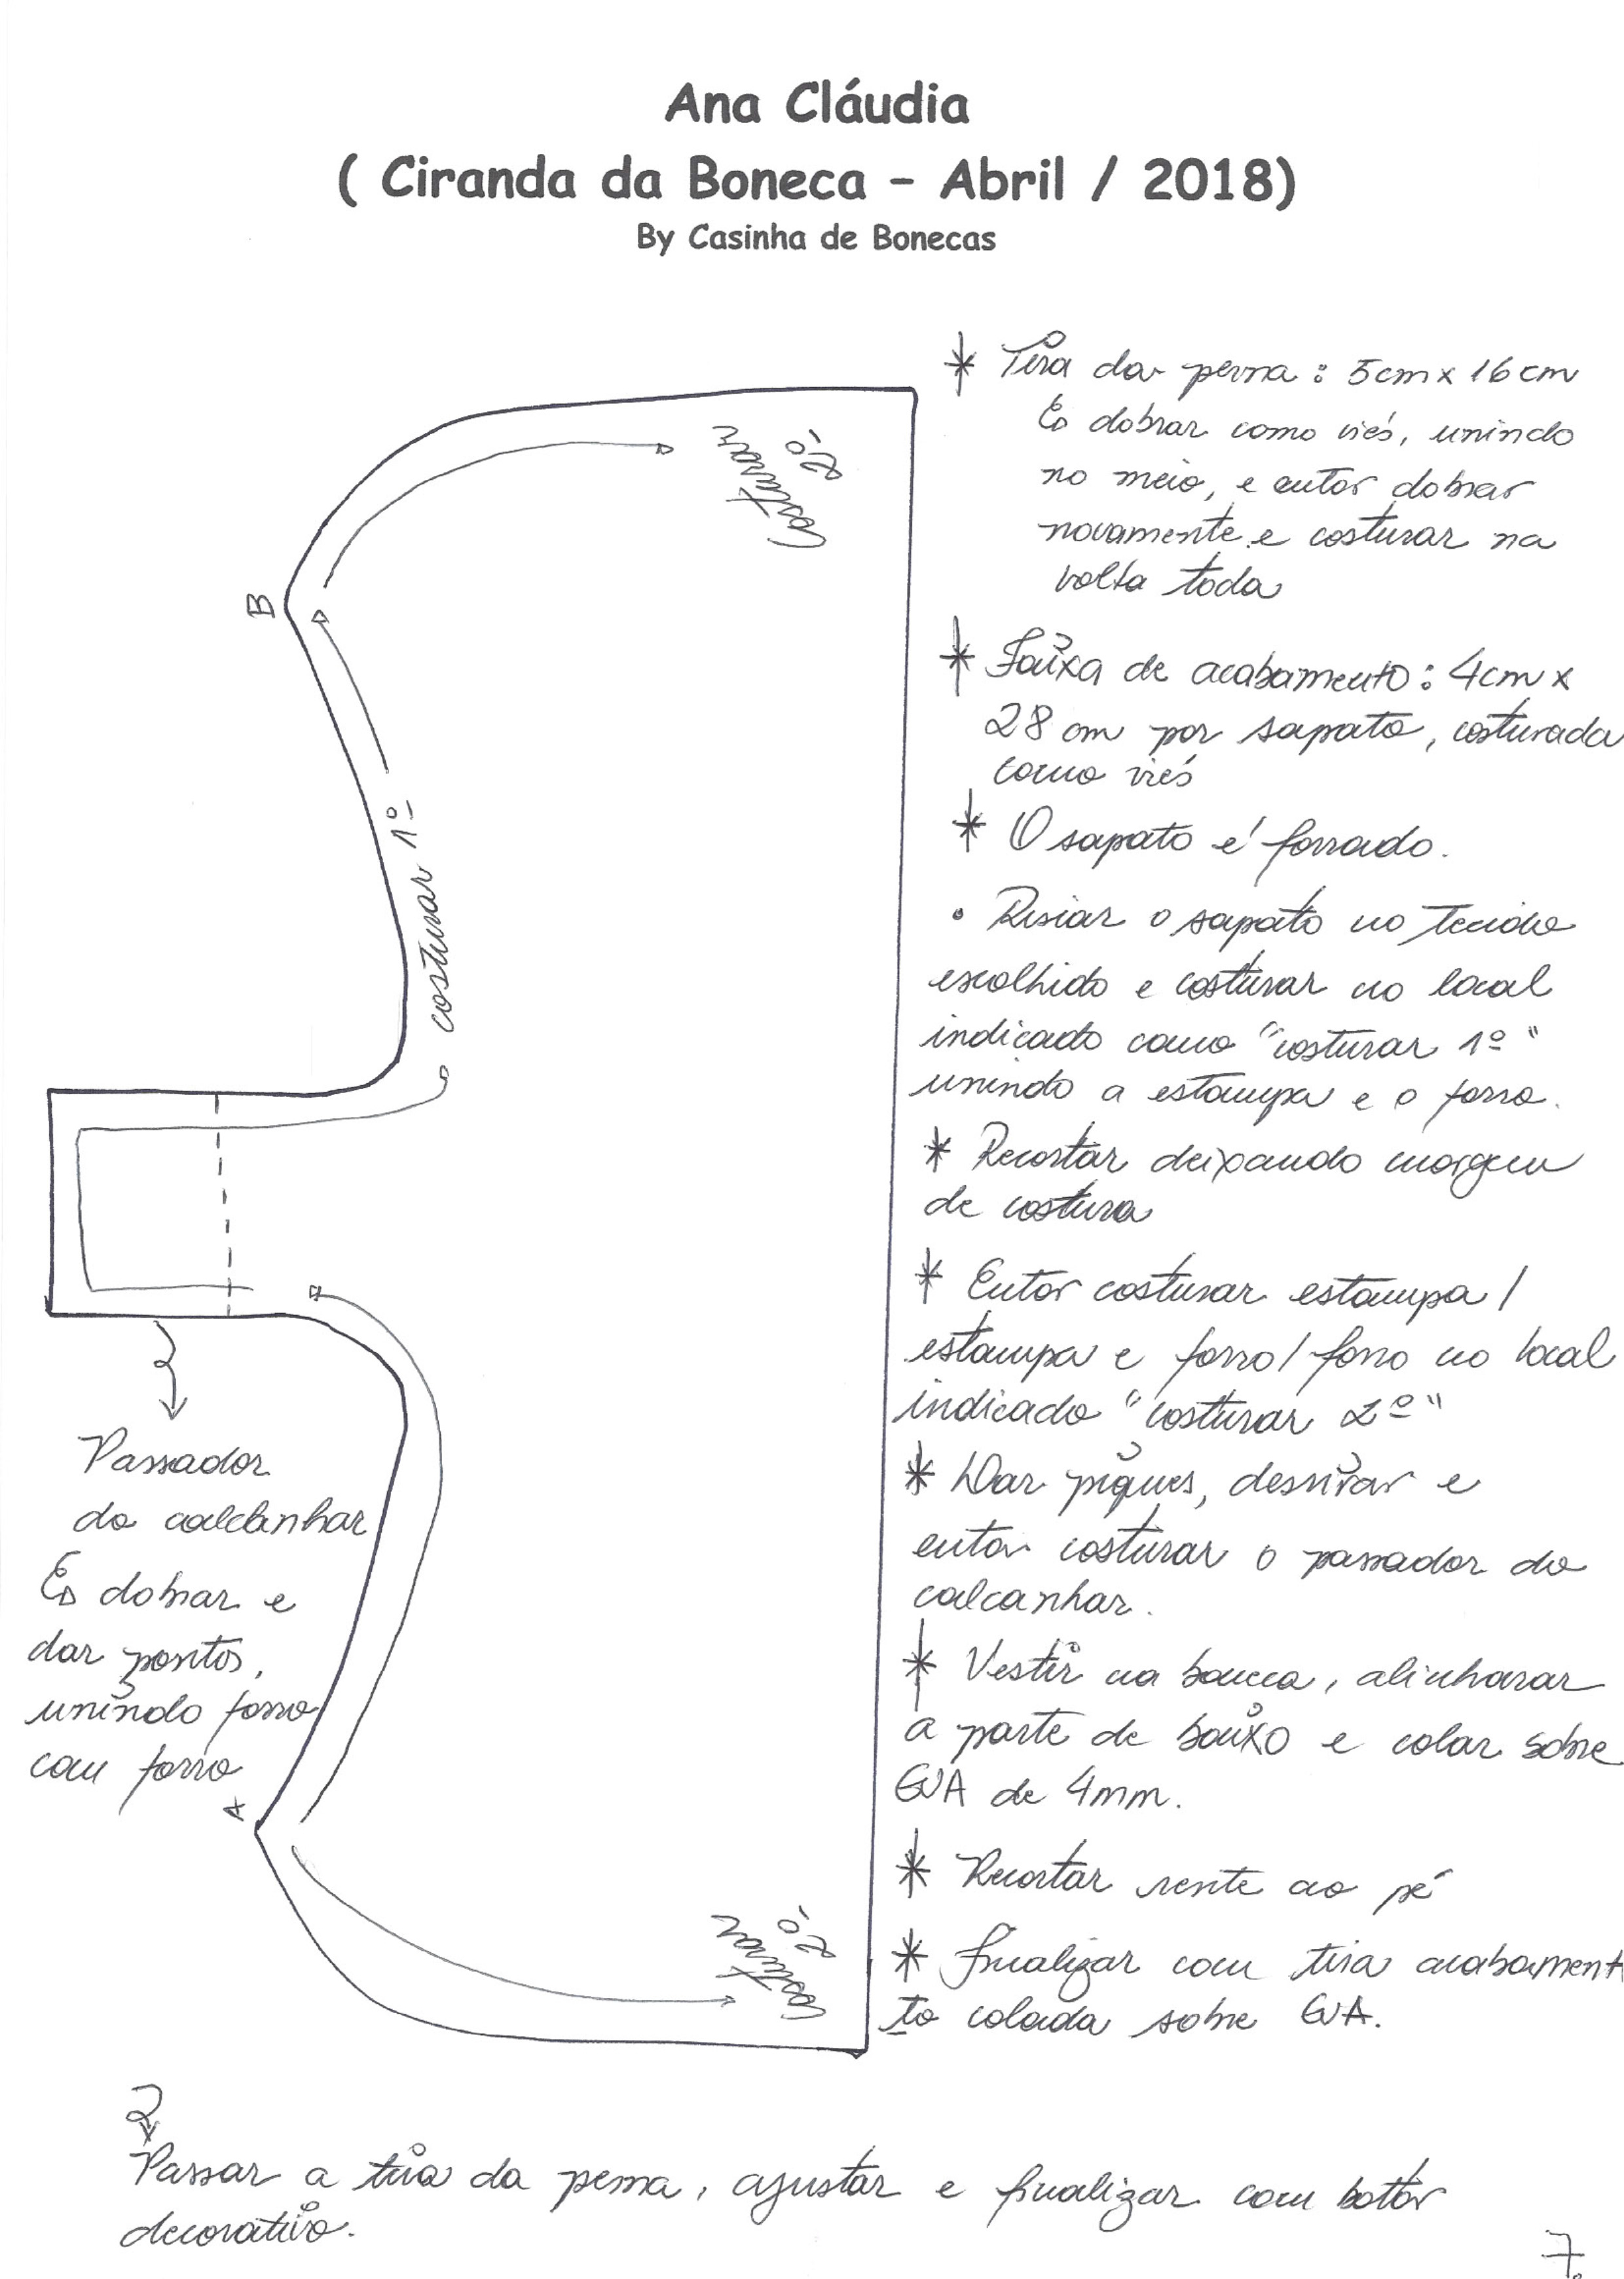 Ana Cláudia
( Ciranda da Boneca – Abril / 2018)
By Casinha de Bonecas
* Tira da perna : 5cm x 16 cm
↳ dobrar como viés, unindo
no meio, e então dobrar
novamente e costurar na
volta toda
* Faixa de acabamento : 4cm x
28 cm por sapato, costurada
como viés
* O sapato é forrado.
• Riscar o sapato no tecido
escolhido e costurar no local
indicado como "costurar 1º"
unindo a estampa e o forro.
* Recortar deixando margem
de costura
* Então costurar estampa /
estampa e forro / forro no local
indicado "costurar 2º"
* Dar piques, desvirar e
então costurar o passador do
calcanhar.
* Vestir na boneca, alinhavar
a parte de baixo e colar sobre
EVA de 4mm.
* Recortar rente ao pé
* finalizar com tira acabament
to colada sobre EVA.
costurar
2º
B
costurar 1º
Passador
do calcanhar
↳ dobrar e
dar pontos,
unindo forro
com forro
A
costurar
2º
Passar a tira da perna, ajustar e finalizar com botão
decorativo.
7.